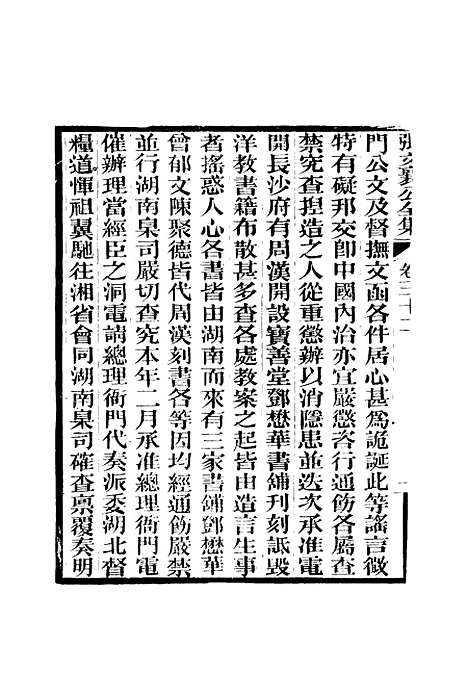 張文襄公全集 卷三十二 一
門公文及督撫文函各件居心甚爲詭誕此等謠言微
特有礙邦交卽中國內治亦宜嚴懲咨行通飭各屬查
禁究查捏造之人從重懲辦以消隱患並迭次承准電
開長沙府有周漢開設寶善堂鄧懋華書鋪刊刻詆毀
洋教書籍布散甚多查各處教案之起皆由造言生事
者搖惑人心各書皆由湖南而來有三家書鋪鄧懋華
曾郁文陳聚德皆代周漢刻書各等因均經通飭嚴禁
並行湖南臬司嚴切查究本年二月承准總理衙門電
催辦理當經臣之洞電請總理衙門代奏派委湖北督
糧道惲祖翼馳往湘省會同湖南臬司確查稟覆奏明